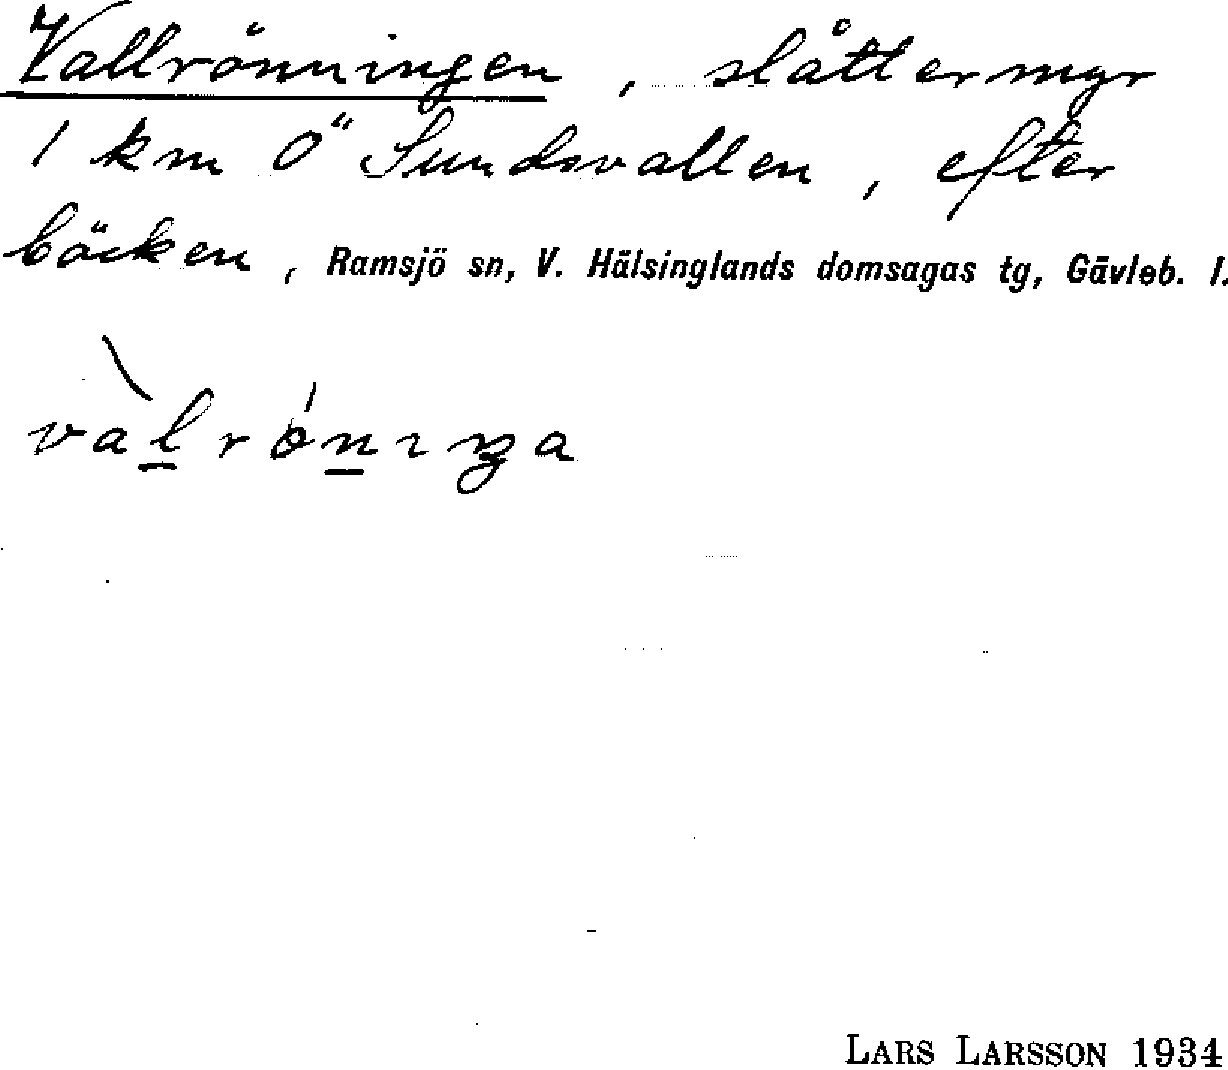 Vallrönningen, slåttermyr
1 km Ö Sundsvallen, efter
bäcken, Ramsjö sn, V. Hälsinglands domsagas tg, Gävleb. l.
LARS LARSSON 1934